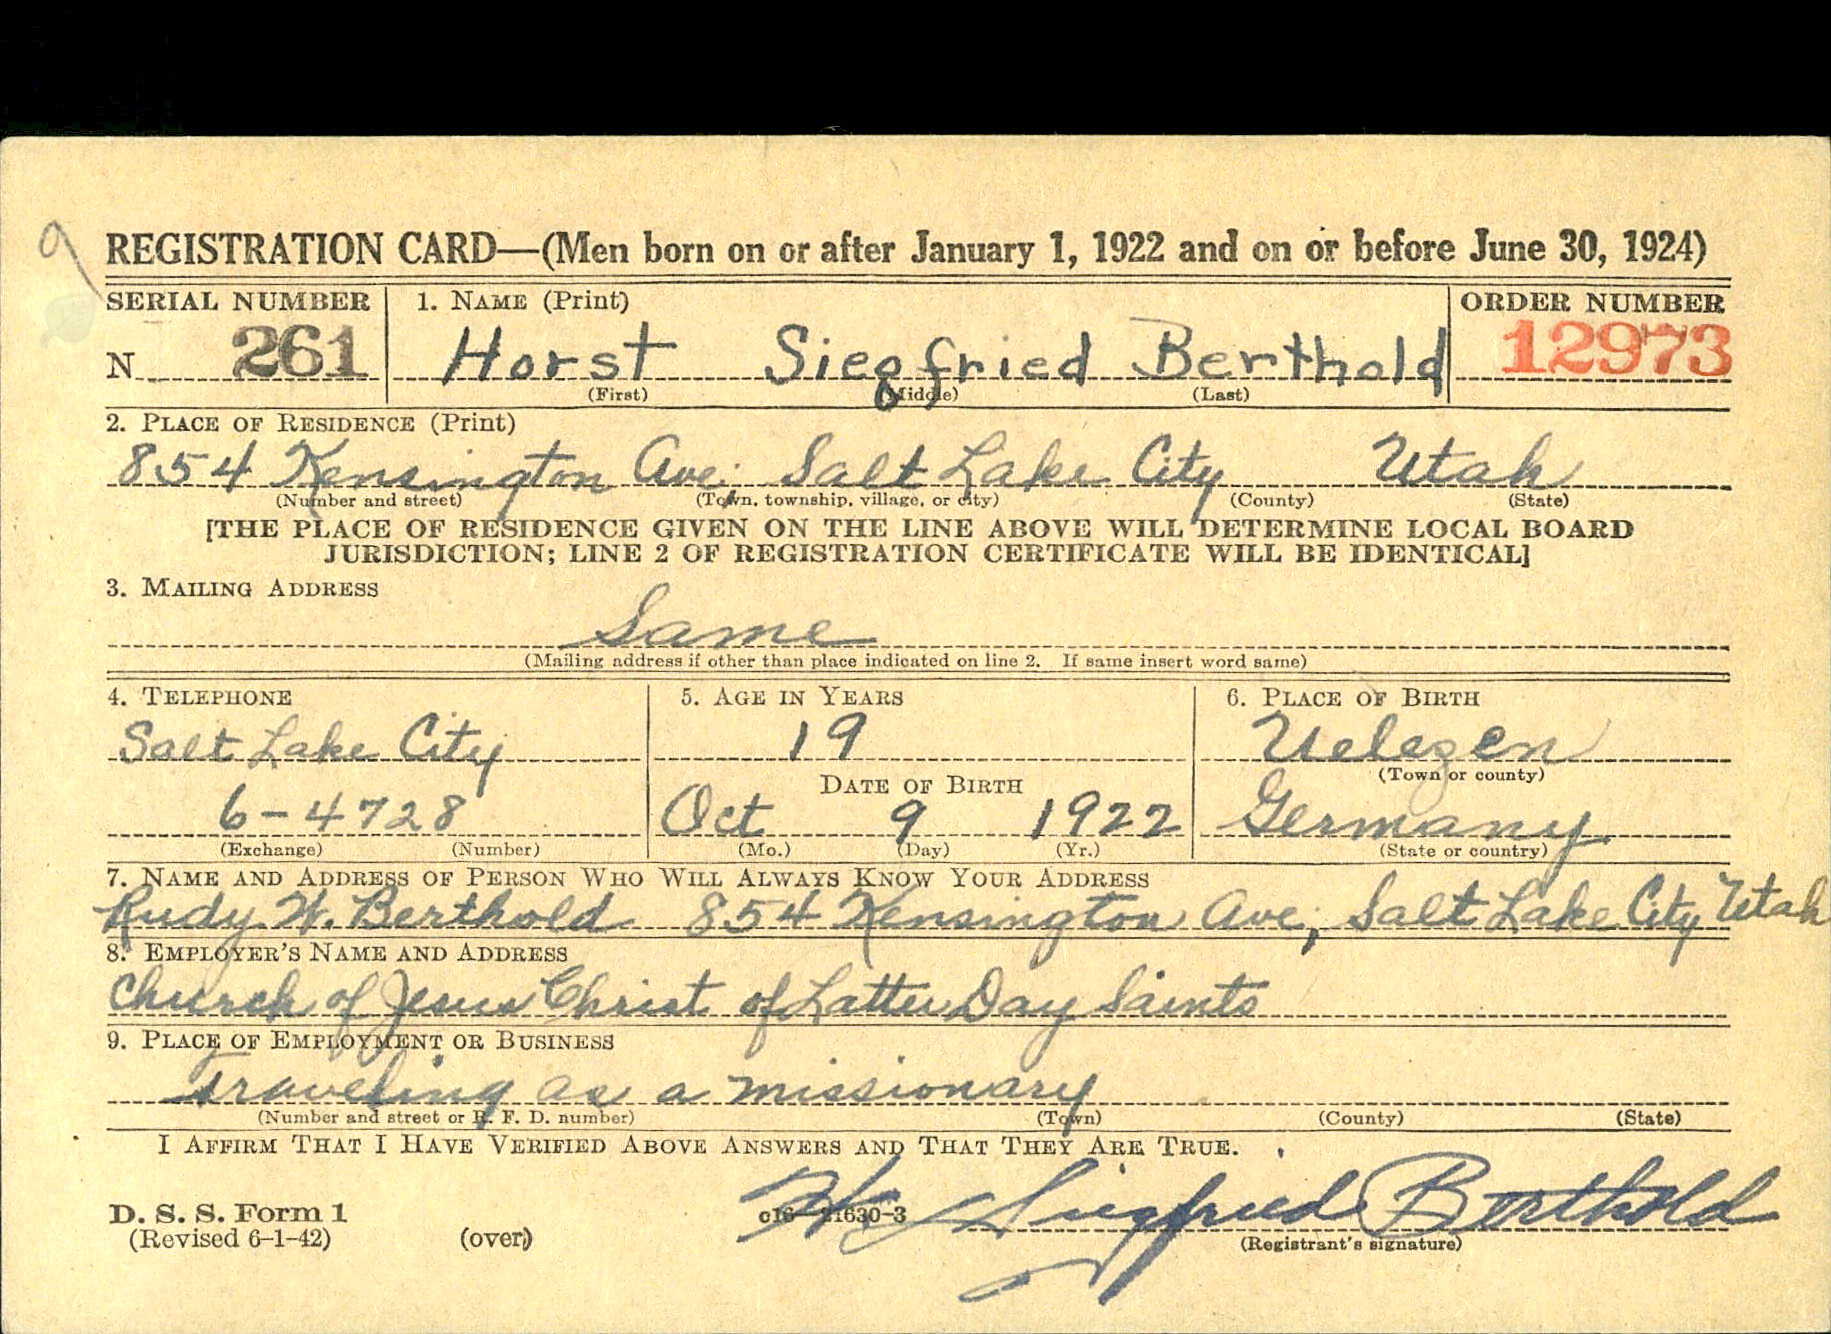 9
REGISTRATION CARD—(Men born on or after January 1, 1922 and on or before June 30, 1924)
SERIAL NUMBER 1. NAME (Print) ORDER NUMBER
N 261 Horst Siegfried Berthold 12973
(First) (Middle) (Last)
2. PLACE OF RESIDENCE (Print)
854 Kensington Ave. Salt Lake City Utah
(Number and street) (Town, township, village, or city) (County) (State)
[THE PLACE OF RESIDENCE GIVEN ON THE LINE ABOVE WILL DETERMINE LOCAL BOARD
JURISDICTION; LINE 2 OF REGISTRATION CERTIFICATE WILL BE IDENTICAL]
3. MAILING ADDRESS
Same
(Mailing address if other than place indicated on line 2. If same insert word same)
4. TELEPHONE 5. AGE IN YEARS 6. PLACE OF BIRTH
Salt Lake City 19 Uelezen
(Town or county)
DATE OF BIRTH
6-4728 Oct 9 1922 Germany
(Exchange) (Number) (Mo.) (Day) (Yr.) (State or country)
7. NAME AND ADDRESS OF PERSON WHO WILL ALWAYS KNOW YOUR ADDRESS
Rudy W. Berthold 854 Kensington Ave, Salt Lake City Utah
8. EMPLOYER'S NAME AND ADDRESS
Church of Jesus Christ of Latter Day Saints
9. PLACE OF EMPLOYMENT OR BUSINESS
Traveling as a missionary
(Number and street or R. F. D. number) (Town) (County) (State)
I AFFIRM THAT I HAVE VERIFIED ABOVE ANSWERS AND THAT THEY ARE TRUE.
D. S. S. Form 1 H. Siegfried Berthold
(Revised 6-1-42) (over) (Registrant's signature)